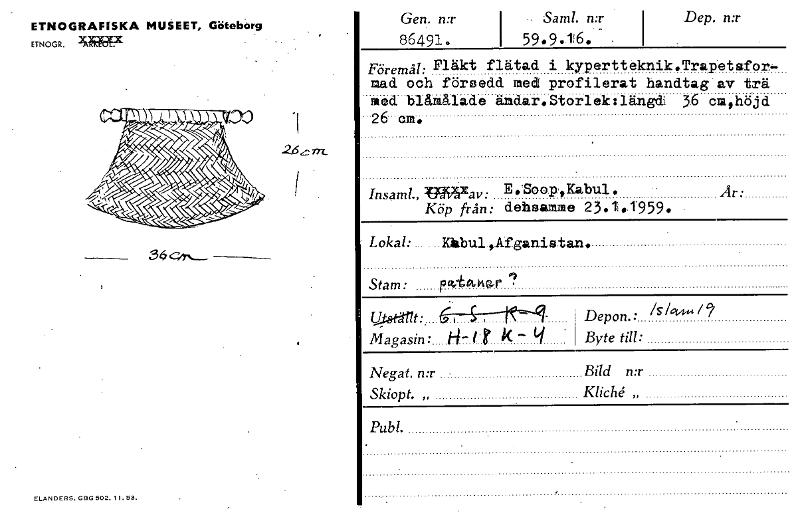 ETNOGRAFISKA MUSEET, Göteborg
ETNOGR. ARKEOL.
26 cm
36 cm
ELANDERS, GBG 502. 11. 53.
Gen. n:r Saml. n:r Dep. n:r
86491. 59.9.16.
Föremål: Fläkt flätad i kypertteknik.Trapetsfor-
mad och försedd med profilerat handtag av trä
med blåmålade ändar.Storlek:längd 36 cm,höjd
26 cm.
Insaml., Gåva av: E.Soop,Kabul. År:
Köp från: densamme 23.1.1959.
Lokal: Kabul,Afganistan.
Stam: pataner?
Utställt: G. S. K-9 Depon.: Islam 9
Magasin: H-18 K-4 Byte till:
Negat. n:r Bild n:r
Skiopt. „ Kliché „
Publ.